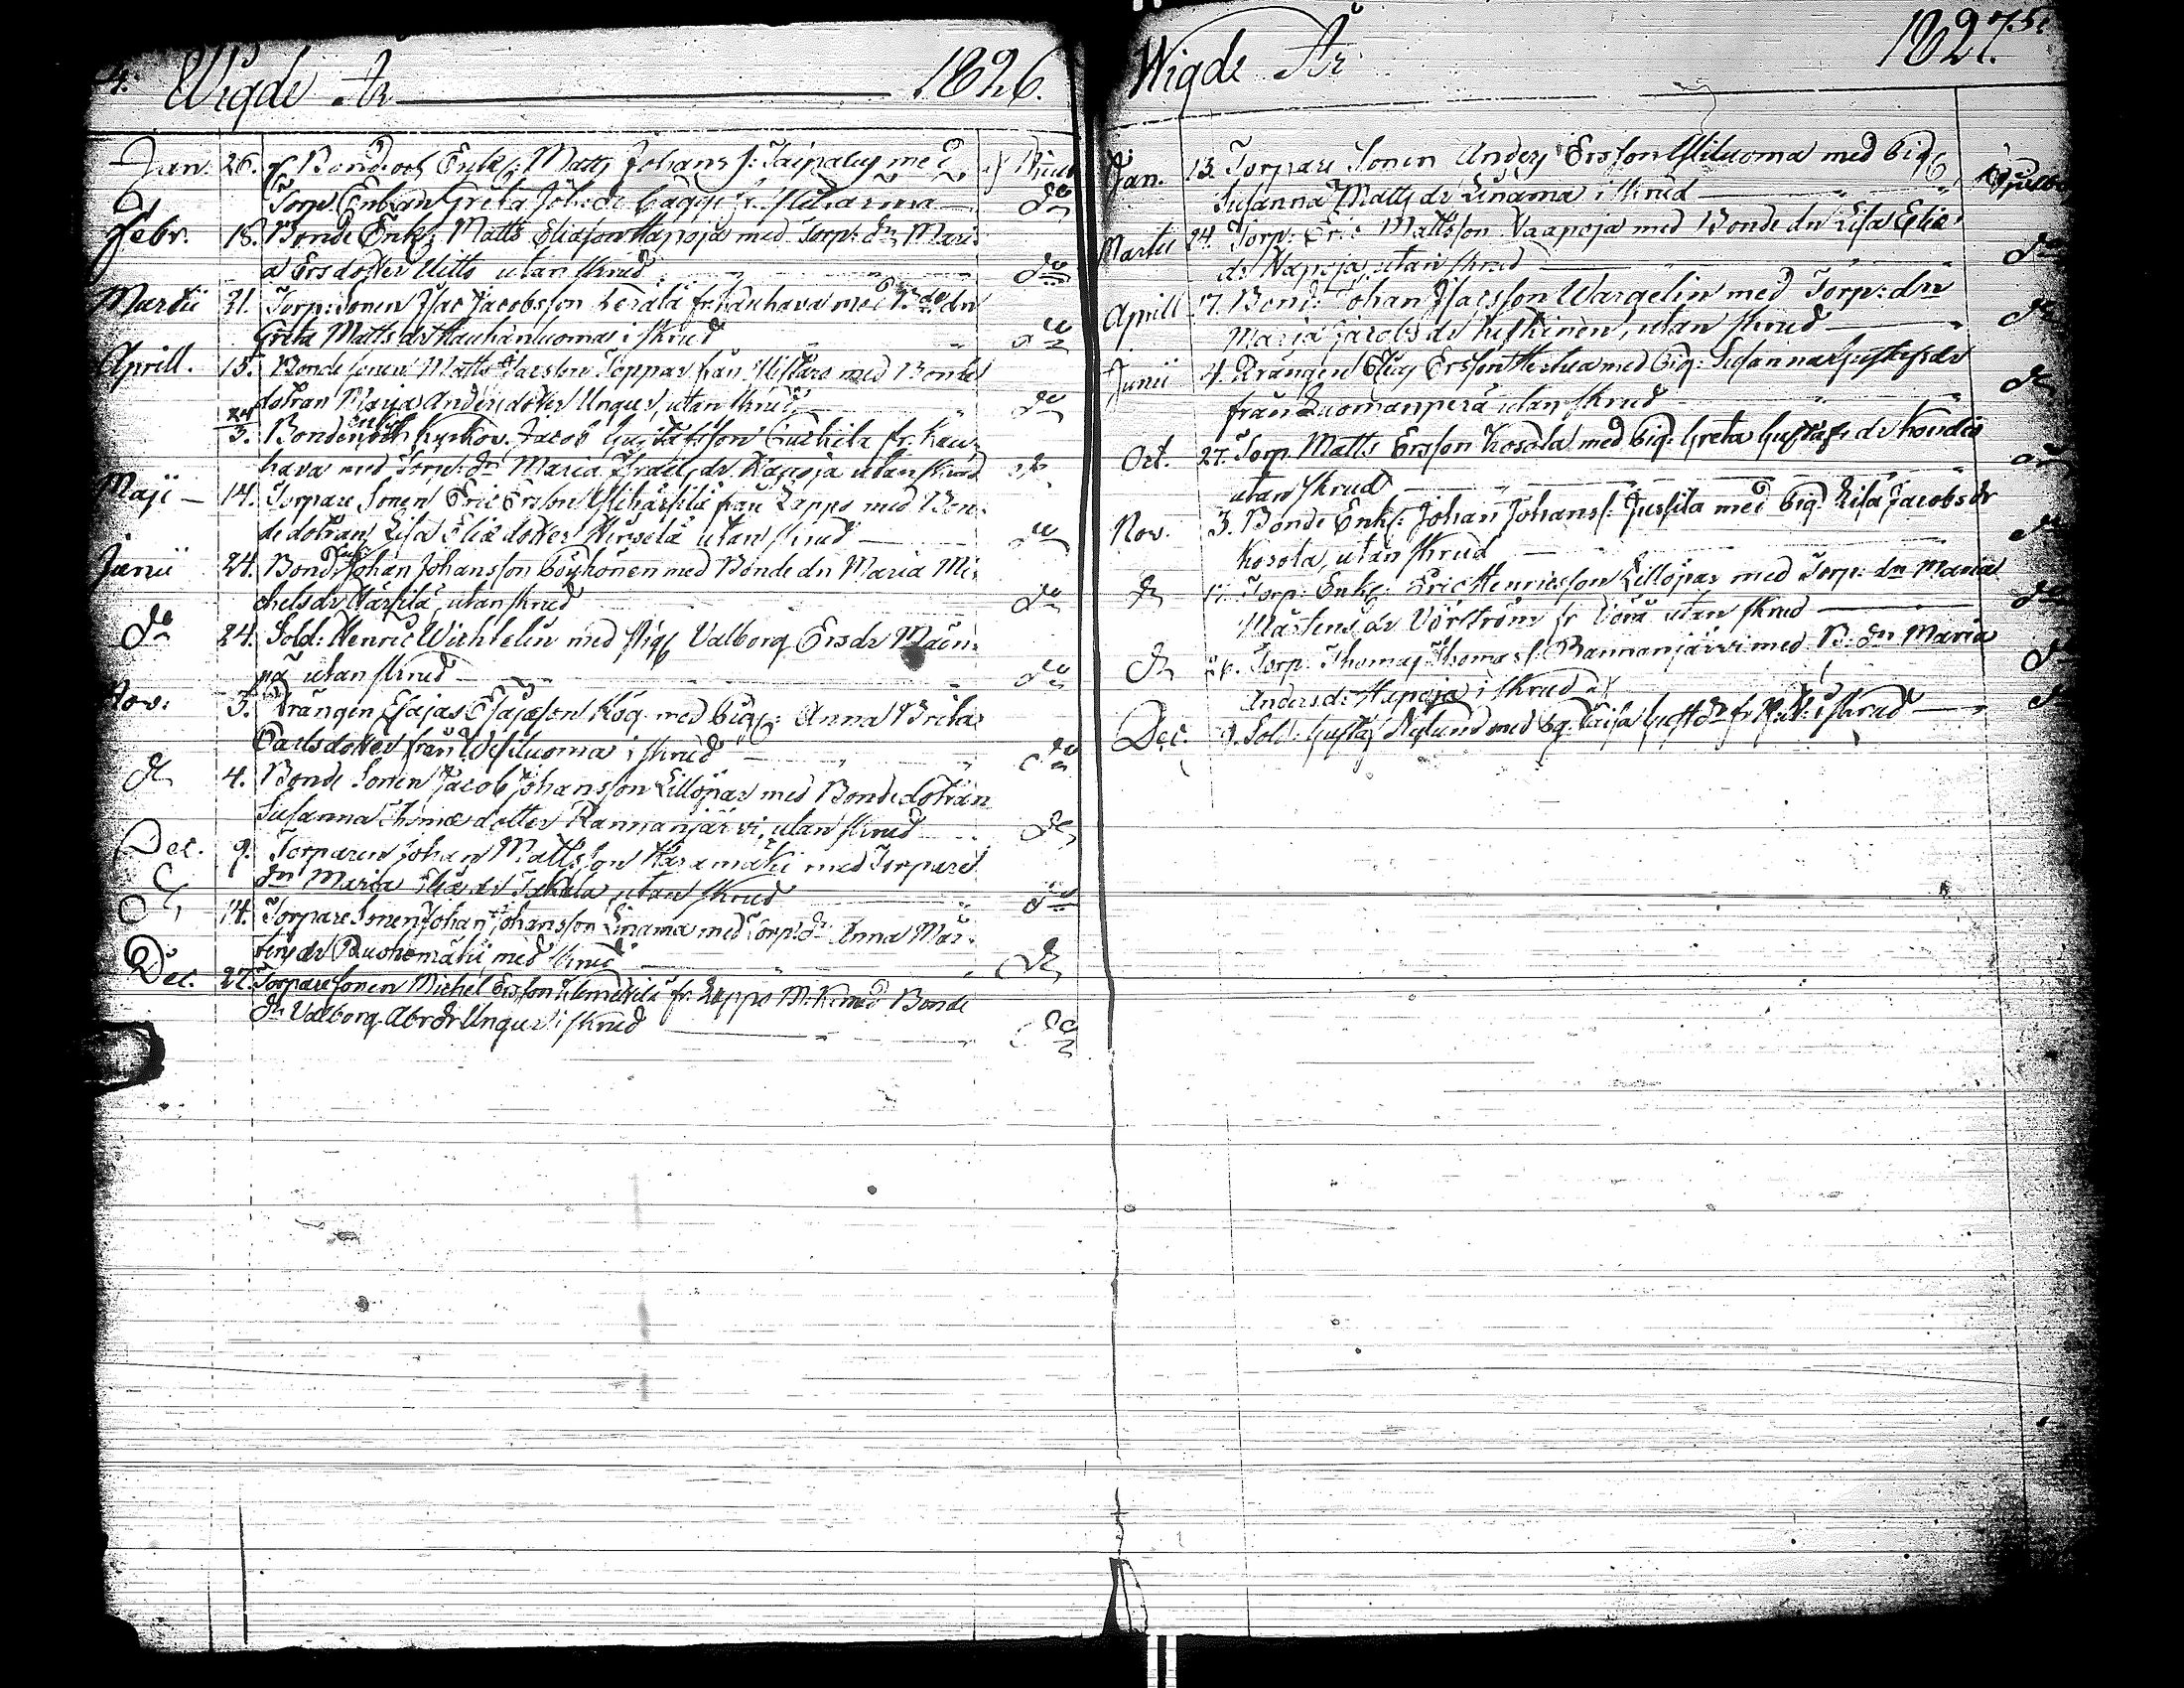 4.
Wigde År 1826.
Jan. 26. Bond. och Enkl: Matts Johans s: Taipalus med
Torp. Enkan Greta Joh:dr Bagge fr. do
Febr. 18. Bonde Enkl: Matts Eliasson Hapoja med Torp: dn Mari-
a Ersdotter Uitto utan skrud do
Martii 21. Torp: Sonen Isac Jacobsson Kerala fr. Kauhava med Bde dn
Greta Mattsdr Kauhanluoma i skrud do
Aprill. 15. Bonde sonen Matts Isacsson Toppar från Ilistaro med Bonde
dotran Maja Andersdotter Ungur, utan skrud do
3. Bonden och Kyrkov. Jacob Gustafsson fr. Kau-
hava med Torp: dn Maria Israelsdr. Kapoja utan skrud do
Maji 14. Torpare Sonen Eric Ersson Ylihärsilä från Lappo med Bon-
de dotran Lisa Eliædotter Hirsilä utan skrud do
Junii 24. Bond. Johan Johansson Köykönen med Bonde dn Maria Mi-
chelsdr Härsilä, utan skrud do
do 24. Sold: Henric Wichtelin med Pig. Valborg Ersdr Mäen-
pä utan skrud do
Nov. 5. Drängen Esajas Esajæson Kog med Pig: Anna Brita
Carlsdotter från i skrud do
do 4. Bonde Sonen Jacob Johansson Lillöjpar med Bonde dotran
Susanna Thomædotter Rannanjärvi, utan skrud do
Dec. 9. Torparen Johan Mattsson Haramäki med Torpare
dn Maria Eliædr Jakkala utan skrud do
do 14. Torpare Sonen Johan Johansson Linama med Torp: dn Anna Mår-
tensdr Ruohomäki med skrud do
Dec. 27. Torpare sonen Michel Ersson Klemetilä fr. Lappo M.K. med Bonde
dn Valborg Abrdr Ungur i skrud do
5.
Wigde År 1827.
Jan. 13. Torpare Sonen Anders Ersson Yliluoma med Pig
Susanna Mattsdr Linama i skrud
Martii 24. Torp: Eric Mattsson Naapoja med Bonde dn Lisa Eliæ
dr Hapoja utan skrud do
Aprill 17. Bond: Johan Isacsson Wargelin med Torp: dn
Maria Jacobsdr Keskinen, utan skrud do
Junii 4. Drängen Elias Ersson med Pig: Susanna Gustafsdr
från Luomanperä utan skrud do
Oct. 27. Torp Matts Ersson Kosola med Pig: Greta Gustafsdr Kondis
utan skrud do
Nov. 3. Bonde Enkl: Johan Johans s: Jussila med Pig: Lisa Jacobsdr
Kosola, utan skrud do
do 11. Torp: Enkl: Eric Henricsson Lillöjpar med Torp: dn Maria
Mårtensdr Vörström fr Vörå utan skrud do
do Torp: Thomas Thomæ s: Rannanjärvi med B: dn Maria
Andersdr Hapoja i skrud do
Dec. 9. Sold: Gustaf Nylund med Pig. Caisa Gustdr fr i skrud do